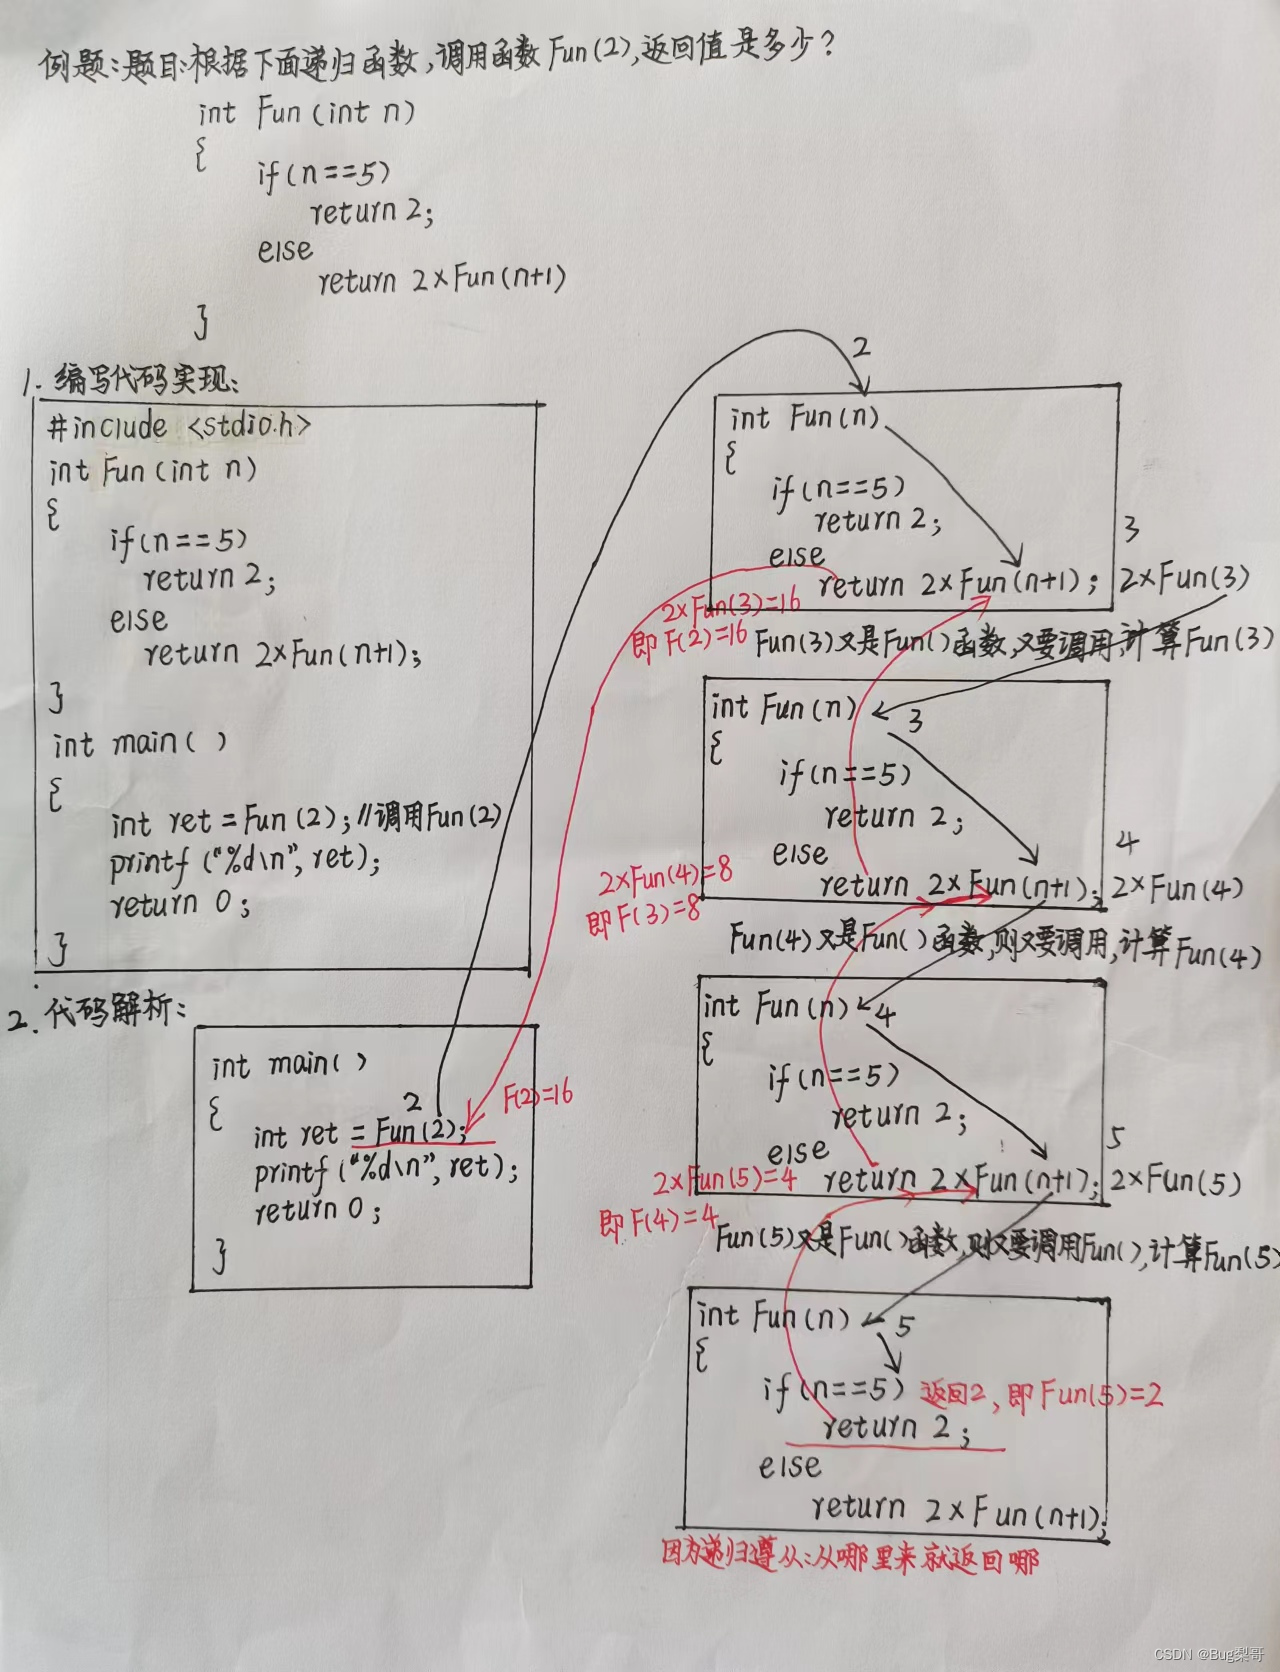 例题:题目:根据下面递归函数,调用函数Fun(2),返回值是多少?
int Fun(int n)
{
if(n==5)
return 2;
else
return 2×Fun(n+1)
}
1. 编写代码实现:
#include <stdio.h>
int Fun(int n)
{
if(n==5)
return 2;
else
return 2×Fun(n+1);
}
int main( )
{
int ret = Fun(2); //调用Fun(2)
printf("%d\n", ret);
return 0;
}
2. 代码解析:
int main( )
{
2
int ret = Fun(2);
F(2)=16
printf("%d\n", ret);
return 0;
}
2
int Fun(n)
{
if(n==5)
return 2;
else
3
return 2×Fun(n+1); 2×Fun(3)
2×Fun(3)=16
即F(2)=16
Fun(3)又是Fun()函数,又要调用,计算Fun(3)
int Fun(n)
3
{
if(n==5)
return 2;
else
4
return 2×Fun(n+1); 2×Fun(4)
2×Fun(4)=8
即F(3)=8
Fun(4)又是Fun()函数,则又要调用,计算Fun(4)
int Fun(n)
4
{
if(n==5)
return 2;
else
5
return 2×Fun(n+1); 2×Fun(5)
2×Fun(5)=4
即F(4)=4
Fun(5)又是Fun()函数,则又要调用Fun(),计算Fun(5)
int Fun(n)
5
{
if(n==5) 返回2,即Fun(5)=2
return 2;
else
return 2×Fun(n+1);
因为递归遵从:从哪里来就返回哪
CSDN @Bug梨哥